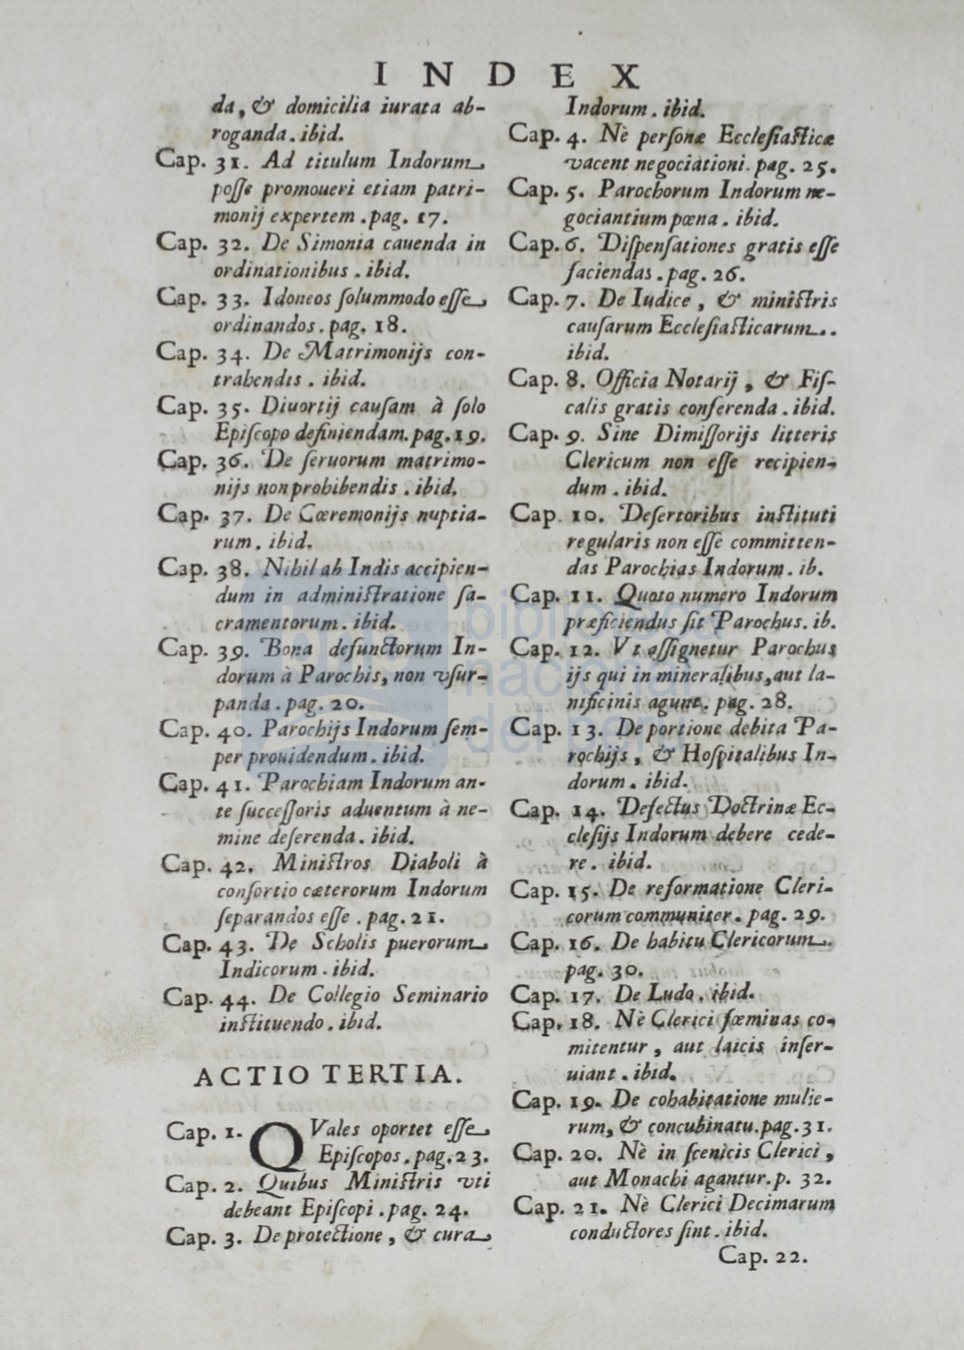 INDEX
da, & domicilia iurata ab-
roganda. ibid.
Cap. 31. Ad titulum Indorum
poſſe promoueri etiam patri-
monij expertem. pag. 17.
Cap. 32. De Simonia cauenda in
ordinationibus. ibid.
Cap. 33. Idoneos ſolummodo eſſe
ordinandos. pag. 18.
Cap. 34. De Matrimonijs con-
trahendis. ibid.
Cap. 35. Diuortij cauſam à ſolo
Epiſcopo definiendam. pag. 19.
Cap. 36. De ſeruorum matrimo-
nijs non prohibendis. ibid.
Cap. 37. De Cæremonijs nuptia-
rum. ibid.
Cap. 38. Nihil ab Indis accipien-
dum in adminiſtratione ſa-
cramentorum. ibid.
Cap. 39. Bona defunctorum In-
dorum à Parochis, non vſur-
panda. pag. 20.
Cap. 40. Parochijs Indorum ſem-
per prouidendum. ibid.
Cap. 41. Parochiam Indorum an-
te ſucceſſoris aduentum à ne-
mine deſerenda. ibid.
Cap. 42. Miniſtros Diaboli à
conſortio cæterorum Indorum
ſeparandos eſſe. pag. 21.
Cap. 43. De Scholis puerorum
Indicorum. ibid.
Cap. 44. De Collegio Seminario
inſtituendo. ibid.
ACTIO TERTIA.
Cap. 1. QVales oportet eſſe
Epiſcopos. pag. 23.
Cap. 2. Quibus Miniſtris vti
debeant Epiſcopi. pag. 24.
Cap. 3. De protectione, & cura
Indorum. ibid.
Cap. 4. Nè perſonæ Eccleſiaſticæ
vacent negociationi. pag. 25.
Cap. 5. Parochorum Indorum ne-
gociantium pœna. ibid.
Cap. 6. Diſpenſationes gratis eſſe
faciendas. pag. 26.
Cap. 7. De Iudice, & miniſtris
cauſarum Eccleſiaſticarum..
ibid.
Cap. 8. Officia Notarij, & Fiſ-
calis gratis conferenda. ibid.
Cap. 9. Sine Dimiſſorijs litteris
Clericum non eſſe recipien-
dum. ibid.
Cap. 10. Deſertoribus inſtituti
regularis non eſſe committen-
das Parochias Indorum. ib.
Cap. 11. Quoto numero Indorum
præficiendus ſit Parochus. ib.
Cap. 12. Vt aſſignetur Parochus
ijs qui in mineralibus, aut la-
nificinis agunt. pag. 28.
Cap. 13. De portione debita Pa-
rochijs, & Hoſpitalibus In-
dorum. ibid.
Cap. 14. Defectus Doctrinæ Ec-
cleſijs Indorum debere cede-
re. ibid.
Cap. 15. De reformatione Cleri-
corum communiter. pag. 29.
Cap. 16. De habitu Clericorum.
pag. 30.
Cap. 17. De Ludo. ibid.
Cap. 18. Nè Clerici fœminas co-
mitentur, aut laicis inſer-
uiant. ibid.
Cap. 19. De cohabitatione mulie-
rum, & concubinatu. pag. 31.
Cap. 20. Nè in ſcenicis Clerici,
aut Monachi agantur. p. 32.
Cap. 21. Nè Clerici Decimarum
conductores ſint. ibid.
Cap. 22.
biblioteca
nacional
del perú